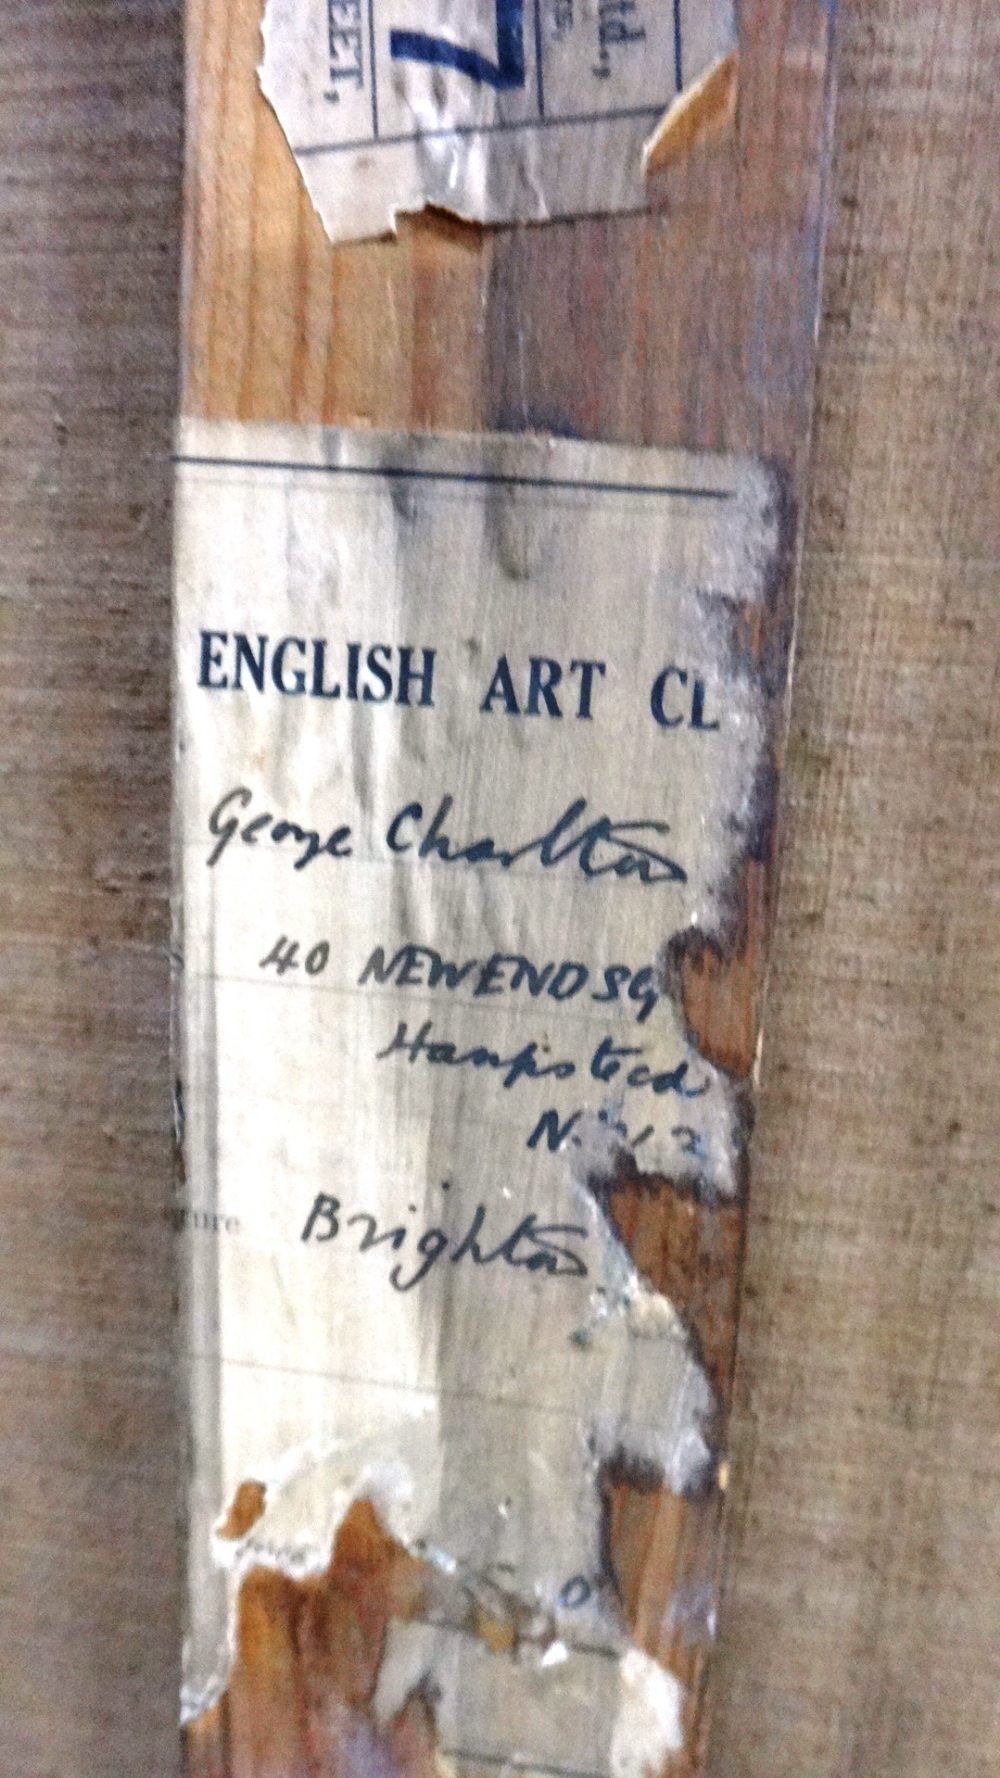 EET,
7
td.,
ENGLISH ART CL
George Charlton
40 NEW END SQ
Hampstead
N. 
ture Brighton